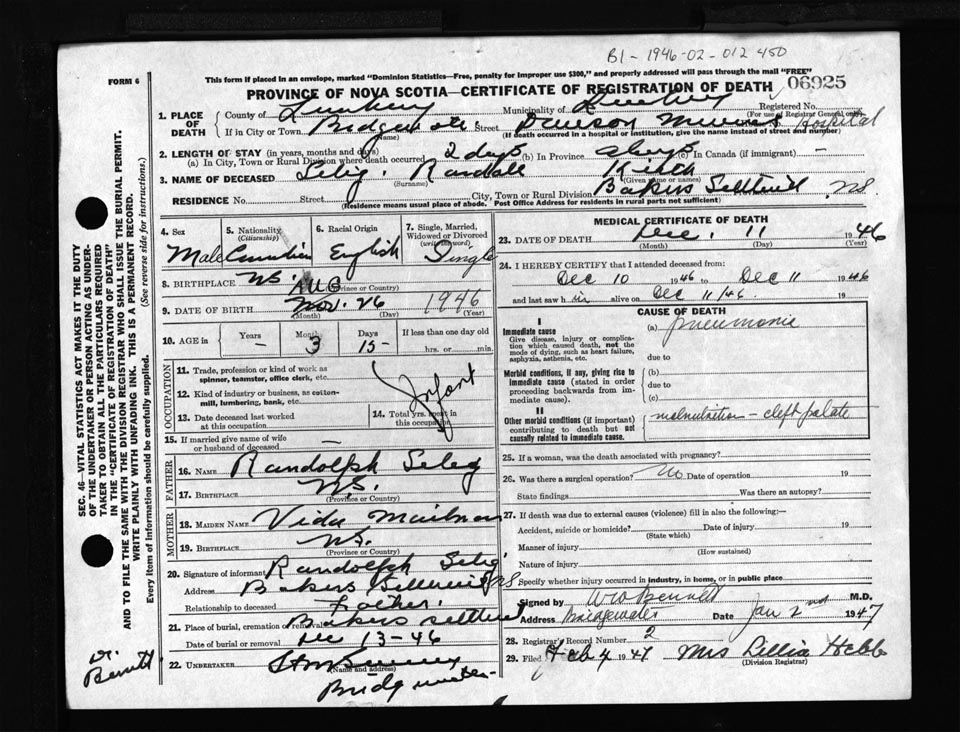 B1-1946-02-012450
FORM 6
This form if placed in an envelope, marked "Dominion Statistics—Free, penalty for improper use $300," and properly addressed will pass through the mail "FREE"
06925
PROVINCE OF NOVA SCOTIA—CERTIFICATE OF REGISTRATION OF DEATH
1. PLACE OF DEATH County of Lunenburg Municipality of Registered No.
(For use of Registrar General only)
If in City or Town Bridgewater Street Dawson Memorial Hospital
(Name) (If death occurred in a hospital or institution, give the name instead of street and number)
2. LENGTH OF STAY (in years, months and days)
(a) In City, Town or Rural Division where death occurred 2 days (b) In Province (c) In Canada (if immigrant) —
3. NAME OF DECEASED Selig. Randall
(Surname) (Given name or names)
RESIDENCE No. Street City, Town or Rural Division Bakers Settlement N.S.
(Residence means usual place of abode. Post Office Address for residents in rural parts not sufficient)
4. Sex Male
5. Nationality (Citizenship) Canadian
6. Racial Origin English
7. Single, Married, Widowed or Divorced (write the word) Single
8. BIRTHPLACE N.S.
(Province or Country)
AUG
9. DATE OF BIRTH Nov. 26 1946
(Month) (Day) (Year)
10. AGE in Years — Months 3 Days 15 If less than one day old hrs. or min.
OCCUPATION
11. Trade, profession or kind of work as spinner, teamster, office clerk, etc.
12. Kind of industry or business, as cotton-mill, lumbering, bank, etc.
Infant
13. Date deceased last worked at this occupation
14. Total yrs. spent in this occupation
15. If married give name of wife or husband of deceased —
FATHER
16. NAME Randolph Selig
17. BIRTHPLACE N.S.
(Province or Country)
MOTHER
18. MAIDEN NAME Vida Mailman
19. BIRTHPLACE N.S.
(Province or Country)
20. Signature of informant Randolph Selig
Address Bakers Settlement NS
Relationship to deceased Father.
21. Place of burial, cremation or removal Bakers Settlement
Date of burial or removal Dec 13-46
22. UNDERTAKER
(Name and address)
Bridgewater
Dr. Bennett
MEDICAL CERTIFICATE OF DEATH
23. DATE OF DEATH Dec. 11 1946
(Month) (Day) (Year)
24. I HEREBY CERTIFY that I attended deceased from:
Dec 10 1946 to Dec 11 1946
and last saw him alive on Dec 11/46 19
CAUSE OF DEATH
I
Immediate cause
Give disease, injury or complication which caused death, not the mode of dying, such as heart failure, asphyxia, asthenia, etc.
(a) pneumonia
due to
Morbid conditions, if any, giving rise to immediate cause (stated in order proceeding backwards from immediate cause).
(b)
due to
(c)
II
Other morbid conditions (if important) contributing to death but not causally related to immediate cause.
malnutrition - cleft palate
25. If a woman, was the death associated with pregnancy?
26. Was there a surgical operation? No Date of operation 19
State findings Was there an autopsy?
27. If death was due to external causes (violence) fill in also the following:—
Accident, suicide or homicide? Date of injury 19
(State which)
Manner of injury
(How sustained)
Nature of injury
Specify whether injury occurred in industry, in home, or in public place
Signed by W O Bennett M.D.
Address Bridgewater Date Jan 2nd 1947
28. Registrar's Record Number 2
29. Filed Feb 4 1947 Mrs Lillia Hebb
(Division Registrar)
SEC. 46—VITAL STATISTICS ACT MAKES IT THE DUTY
OF THE UNDERTAKER OR PERSON ACTING AS UNDER-
TAKER TO OBTAIN ALL THE PARTICULARS REQUIRED
IN THE "CERTIFICATE OF REGISTRATION OF DEATH"
AND TO FILE THE SAME WITH THE DIVISION REGISTRAR WHO SHALL ISSUE THE BURIAL PERMIT.
WRITE PLAINLY WITH UNFADING INK. THIS IS A PERMANENT RECORD.
Every item of Information should be carefully supplied. (See reverse side for instructions.)